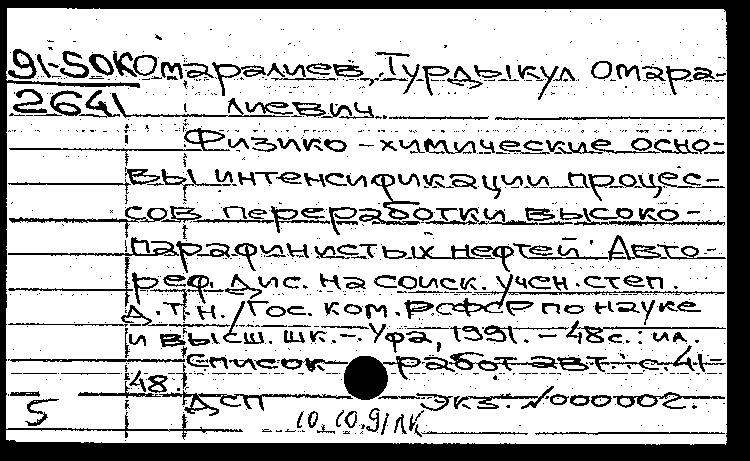 91-5ОК Омаралиев, Турдыкул Омара-
2641 лиевич.
Физико-химические осно-
вы интенсификации процес-
сов переработки высоко-
парафинистых нефтей: Авто-
реф. дис. на соиск. учен. степ.
д.т.н. / Гос. ком. РСФСР по науке
и высш. шк. - Уфа, 1991. - 48 с.: ил.
Список работ авт.: с. 41-
48.
5 ДСП Экз. №000002.
10.10.91 ЛК